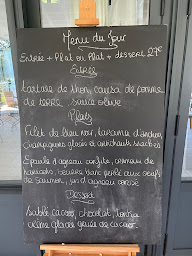 Menu du Jour
Entrée + Plat ou Plat + dessert 27€
Entrée
tartare de thon, causa de pomme
de terre, sauce olive
Plats
Filet de lieu noir,
champignons glacés et artichauts snackés
Epaule d'agneau confite,
haricots, beurre blanc perlé aux oeufs
de saumon, jus d'agneau corsé
Dessert
Sablé cacao, chocolat, tonka
crème glacée gruée de cacao.